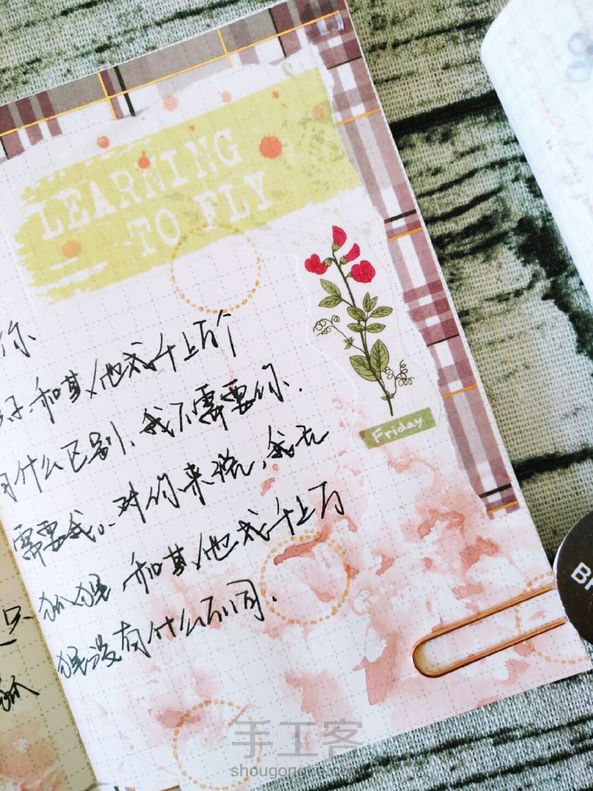 LEARNING
TO FLY
你
子、和其他成千上万个
什么区别、我不需要你.
Friday
需要我.对你来说,我无
狐狸、和其他成千上万
狸没有什么不同.
只.
手工客